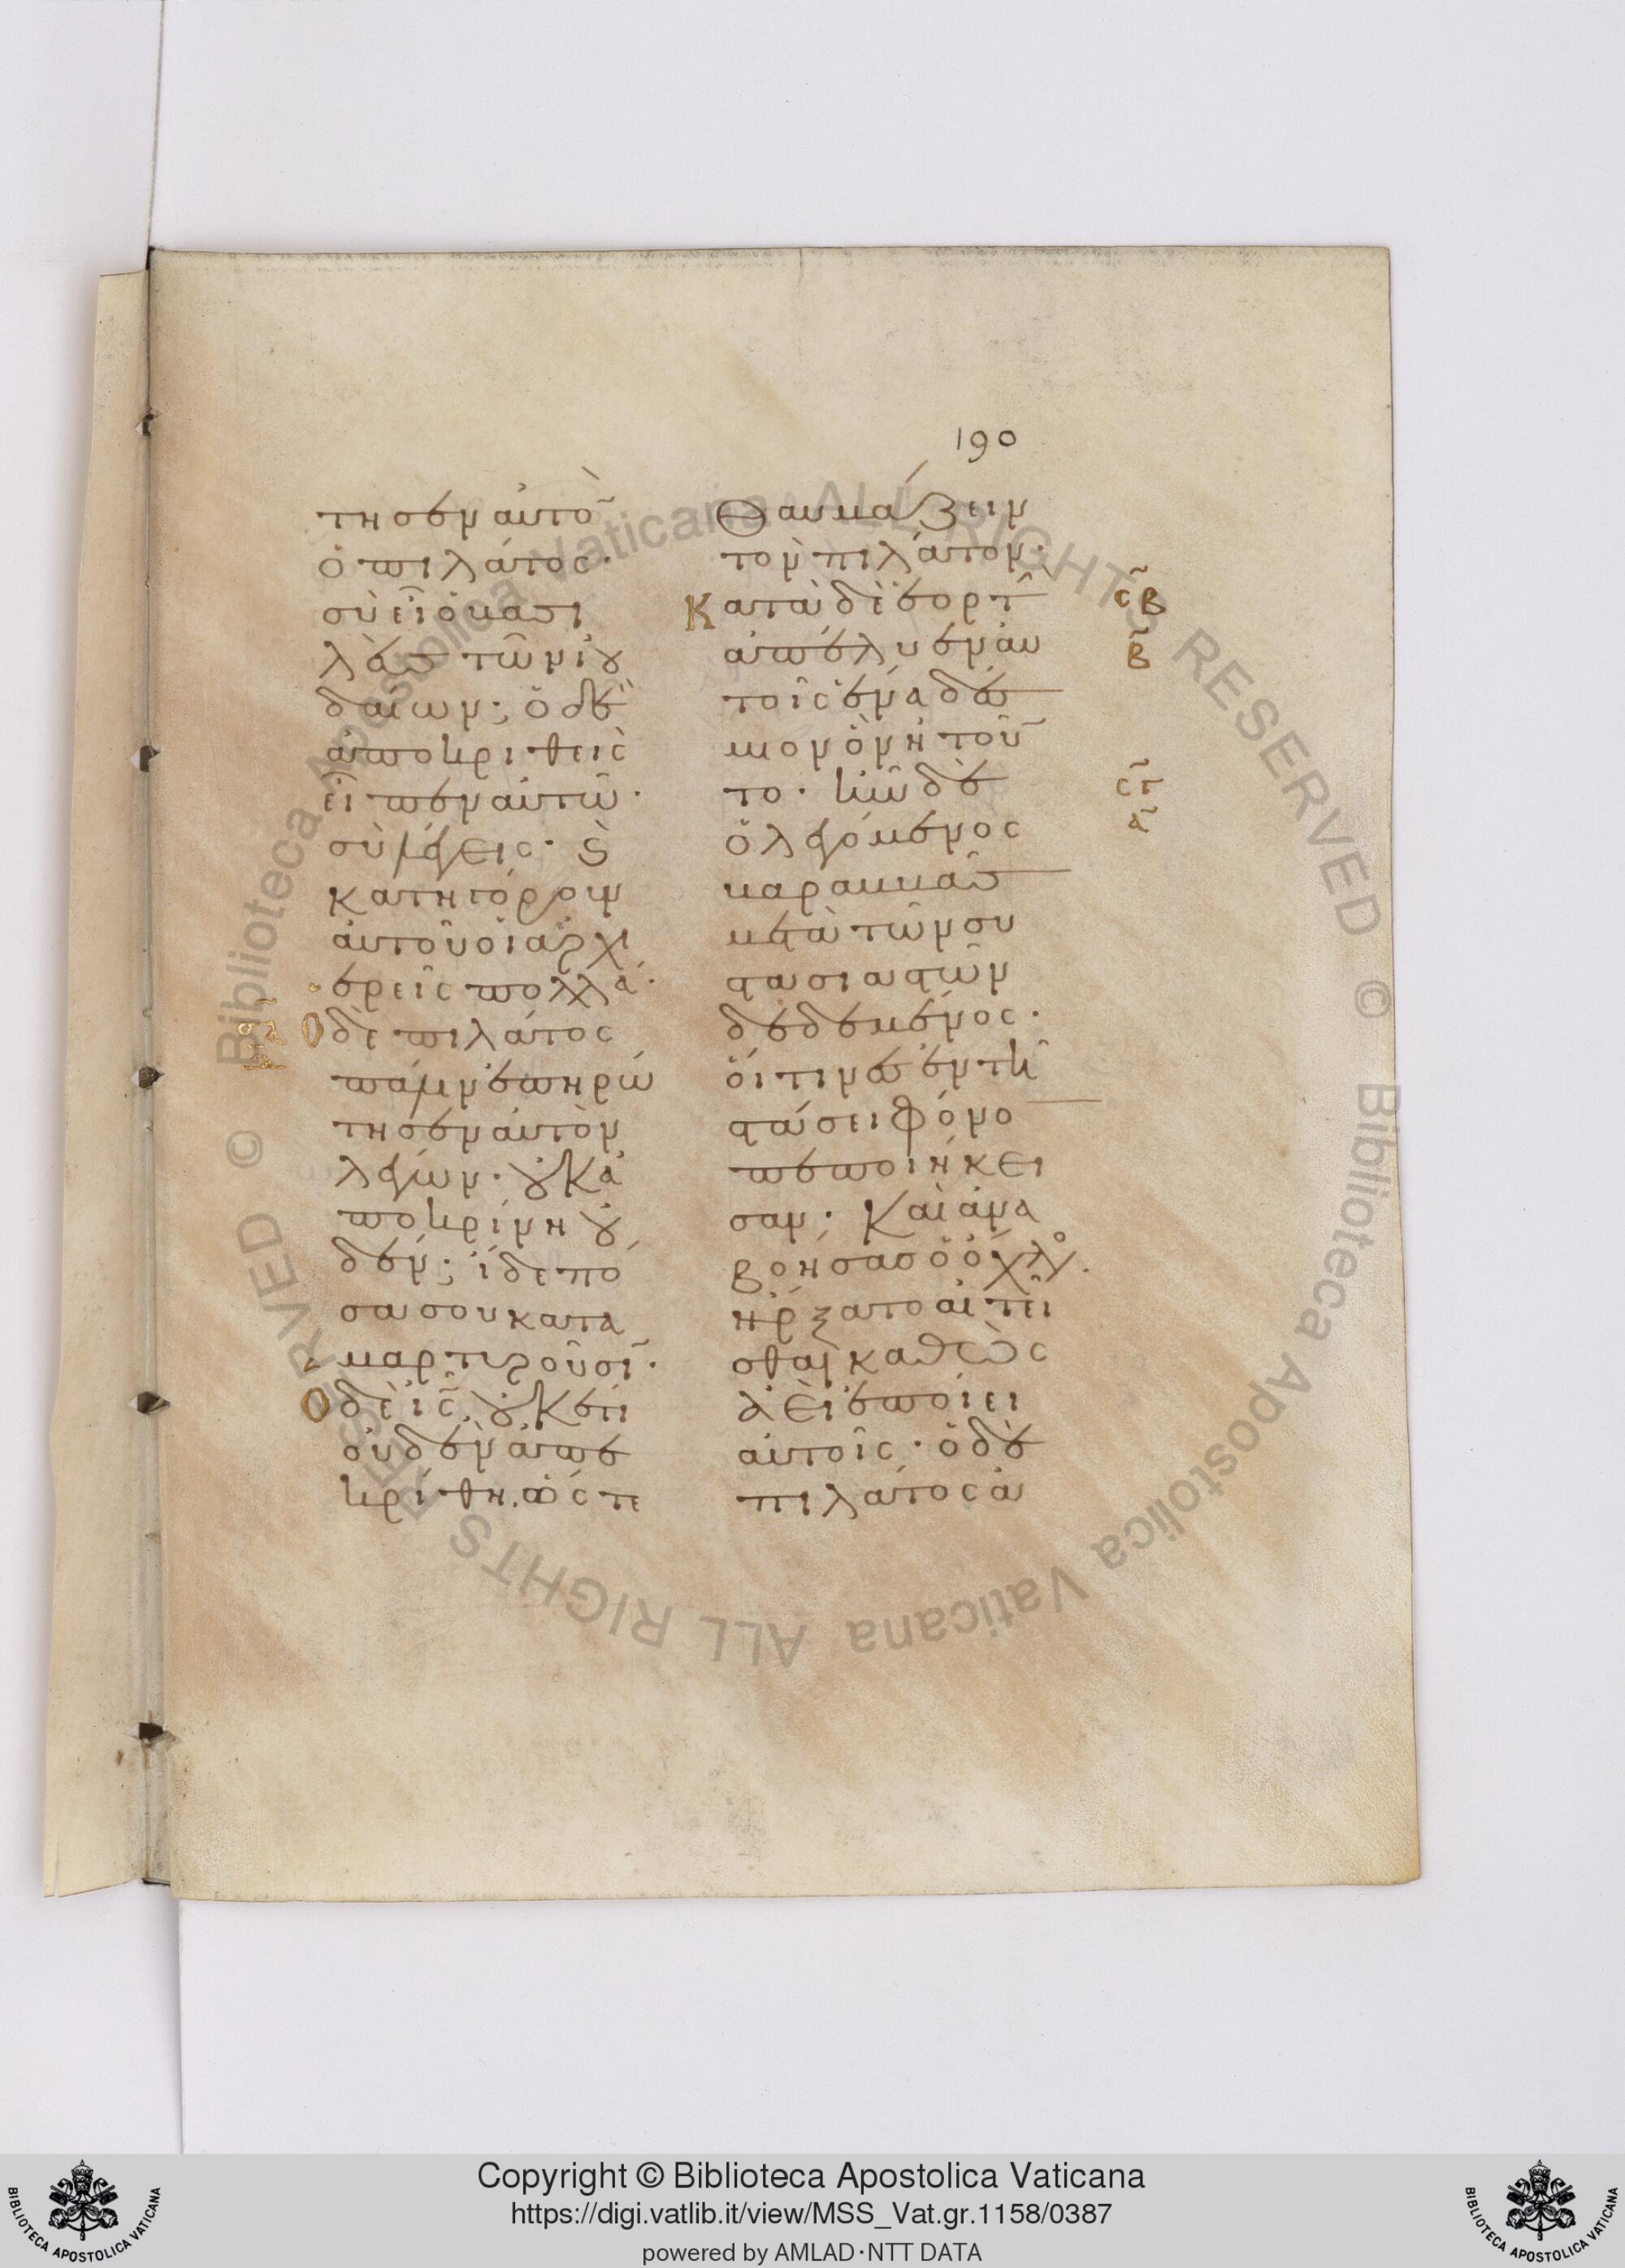 190
τησεν αὐτὸ̄
ὁ πιλάτος·
σὺ εἶ ὁ βασι
λεὺς τῶν ἰου
δαίων; ὁ δὲ
ἀποκριθεὶς
εἶπεν αὐτῶ·
σὺ λέγεις· ϗ
κατηγόρουν
αὐτοῦ οἱ ἀρχι
ερεῖς πολλά·
Ο δὲ πιλάτος
πάλιν ἐπηρώ
τησεν αὐτὸν
λέγων· οὐκ ἀ
ποκρίνη οὐ
δέν; ἴδε πό
σα σου κατα
μαρτυροῦσῑ·
Ο δὲ ις̄ οὐκέτι
οὐδὲν ἀπε
κρίθη, ὥστε
θαυμάζειν
τὸν πιλάτον·
Κατὰ δὲ ἑορτὴ̄
σ̄β
ἀπέλυεν αὐ
β̄
τοῖς ἕνα δέσ
μιον ὃν ἠτοῦν̄
το· ἦν δὲ
σ̄γ
ὁ λεγόμενος
ᾱ
βαραββᾶς
μετὰ τῶν συ
στασιαστῶν
δεδεμένος·
οἵτινες ἐν τῆ
στάσει φόνο̄
πεποιήκει
σαν· Καὶ ἀνα
βοήσας ὁ ὄχλος·
ἤρξατο αἰτεῖ
σθαι καθὼς
ἀεὶ ἐποίει
αὐτοῖς· ὁ δὲ
πιλάτος ἀ
Copyright © Biblioteca Apostolica Vaticana
https://digi.vatlib.it/view/MSS_Vat.gr.1158/0387
powered by AMLAD·NTT DATA
BIBLIOTECA APOSTOLICA VATICANA
BIBLIOTECA APOSTOLICA VATICANA
Biblioteca Apostolica Vaticana ALL RIGHTS RESERVED © Biblioteca Apostolica Vaticana ALL RIGHTS RESERVED ©